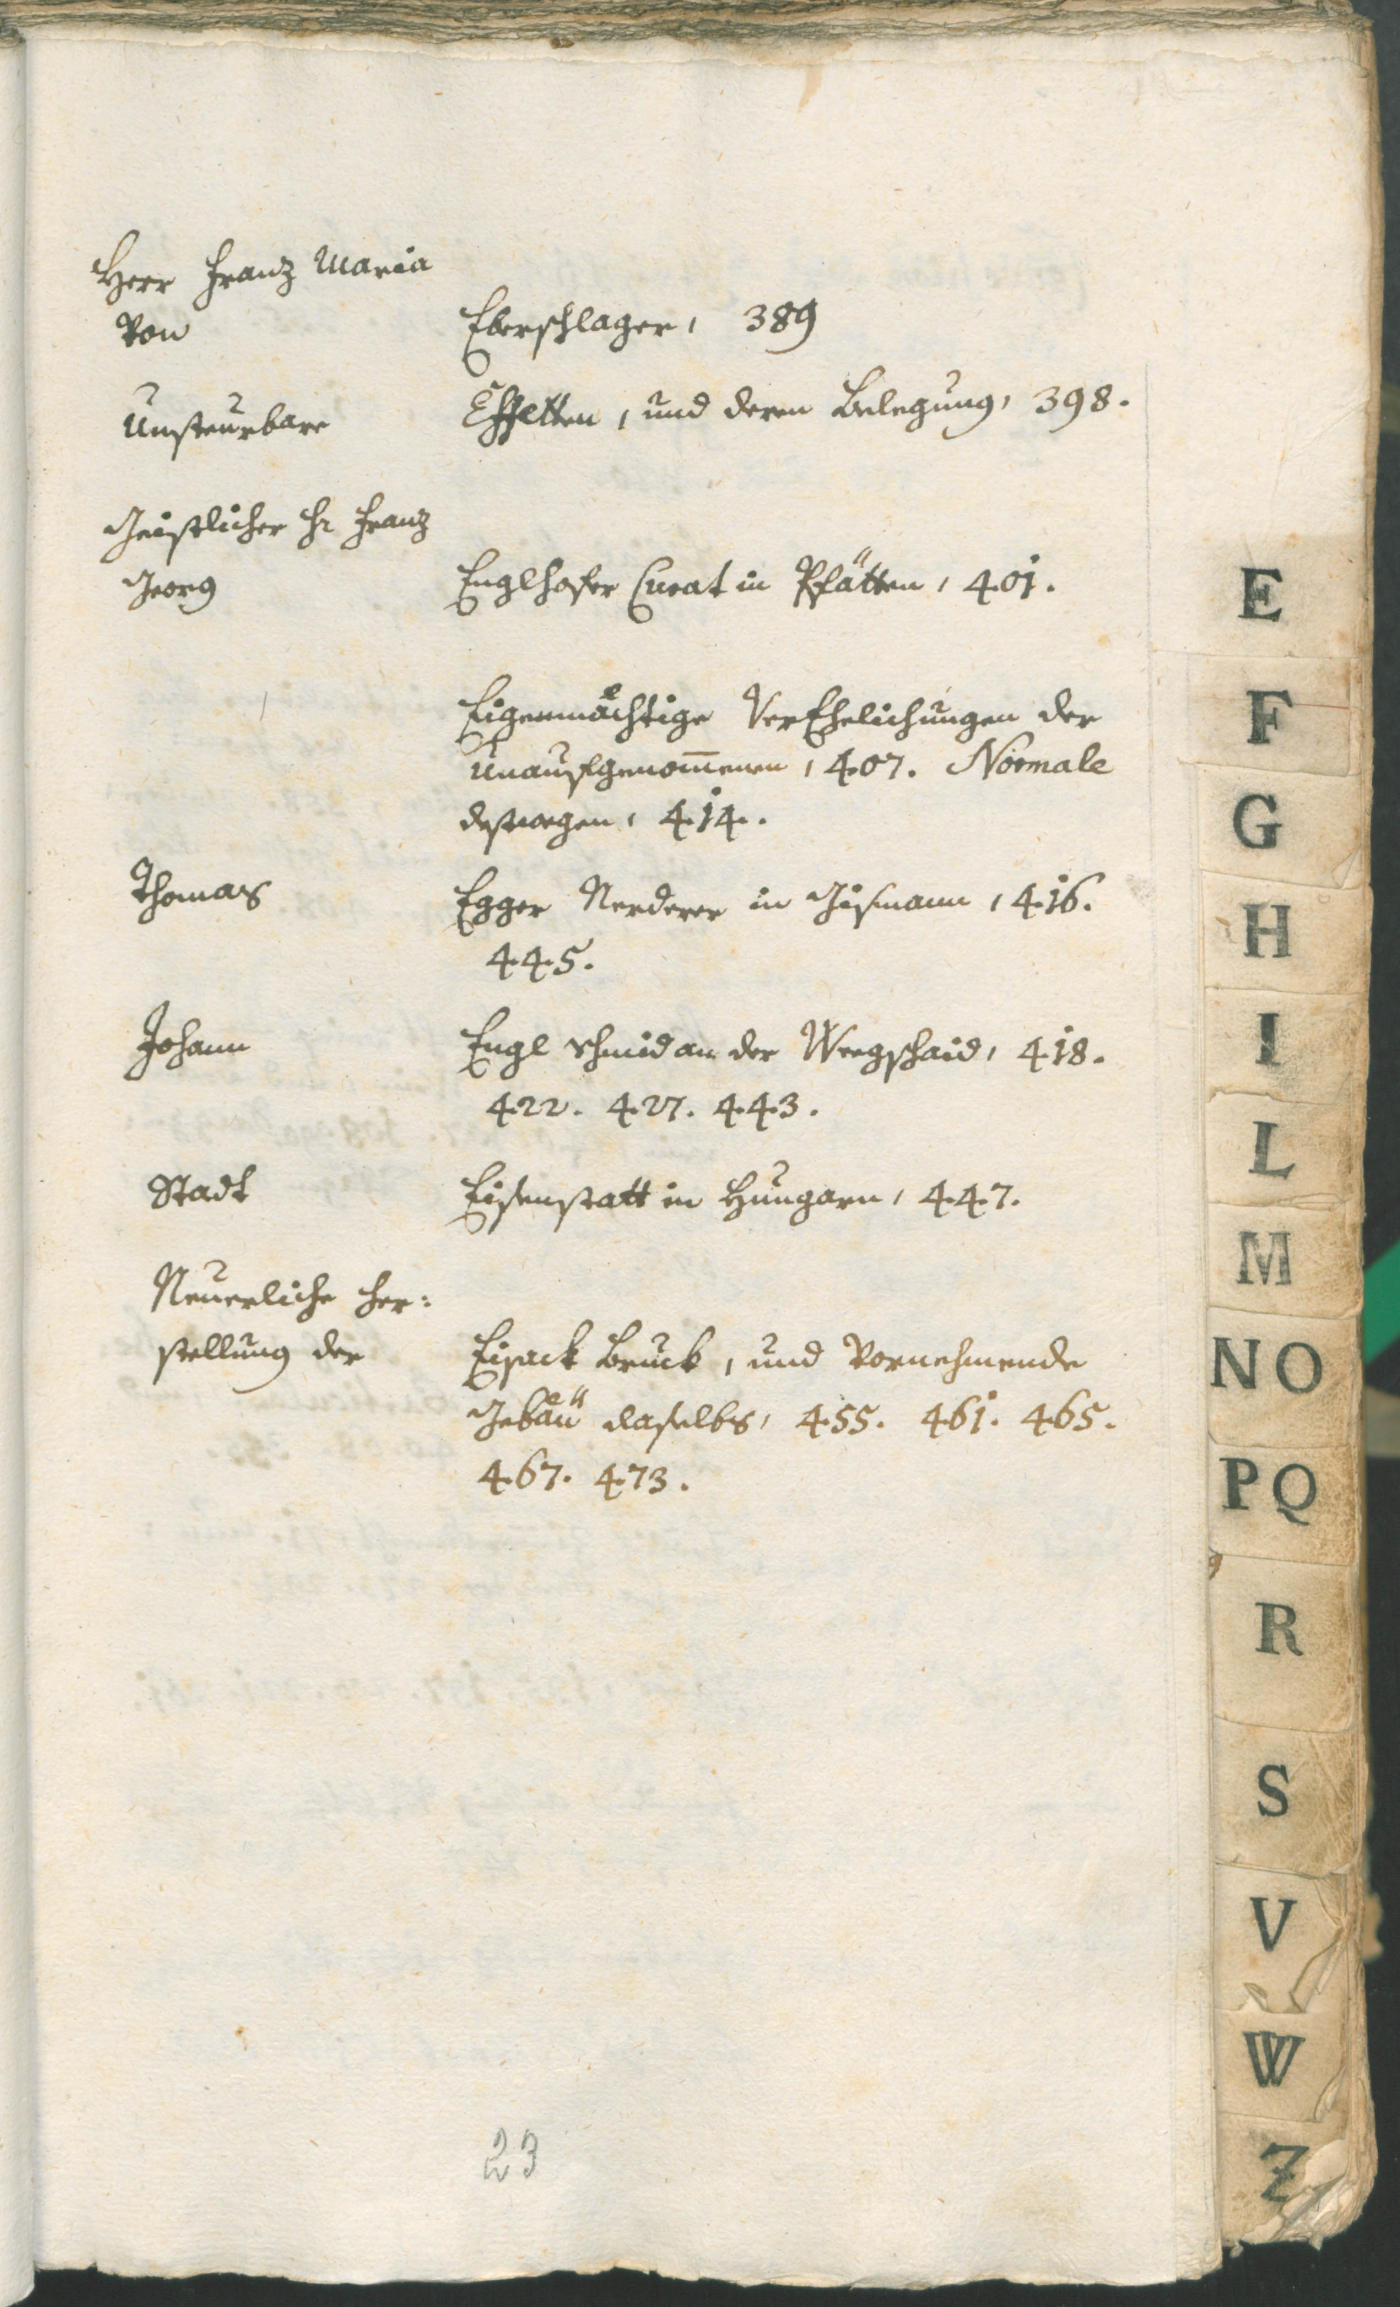 Herr Franz Maria
von Eberschlager, 389
Unsteurbare Effetten, und deren Belegung, 398.
Geistlicher Hr Franz
Georg Englhofer Curat in Pfätten, 401.
Eigenmächtige VerEhelichungen der
Unaufgenom̅enen, 407. Normale
destwegen, 414.
Thomas Egger Nerderer in Gismann, 416.
445.
Johann Engl Schmid an der Weegschaid, 418.
422. 427. 443.
Stadt Eisenstatt in Hungarn, 447.
Neuerliche Her=
stellung der Eisack Bruck, und vornehmende
Gebäu daselbs, 455. 461. 465.
467. 473.
23
E
F
G
H
I
L
M
N O
P Q
R
S
V
W
Z